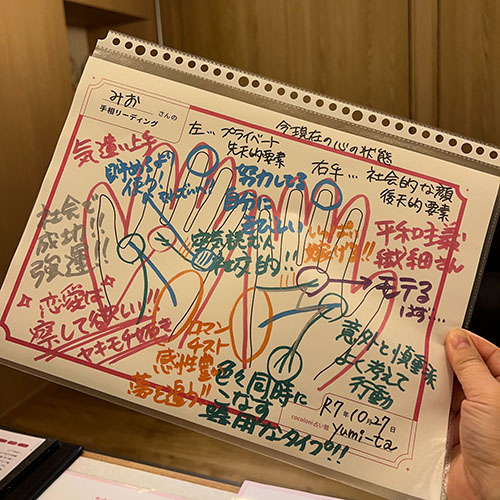 みおさんの
手相リーディング
今現在の心の状態
左…プライベート
先天的要素
右手…社会的な顔
後天的要素
気遣い上手
貯めるより
使う!
努力してる
自分に
きびしい
空気読む人
社交的!!
平和主義
繊細さん
モテる
はず…
社会で
成功!!
強運!!
恋愛は
察して欲しい!!
ヤキモチやき
ロマン
チスト
感性豊
夢を追う!!
意外と慎重派
よく考えて
行動
色々同時に
こなす
器用ワンタイプ!!
R7年10月27日
cocoloni占い館
Yumi-ta